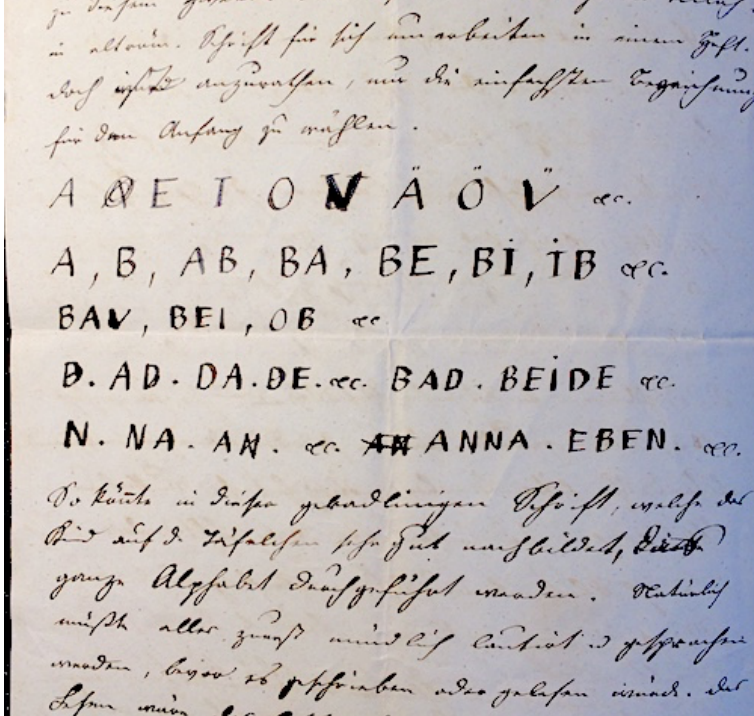 zu diesem
in altröm. Schrift für sich um arbeiten in einem Heft.
doch anzurathen, nur die einfachsten Bezeichnung
für den Anfang zu wählen.
A E I O V Ä Ö V̈ &c.
A, B, AB, BA, BE, BI, IB &c.
BAV, BEI, OB &c
D. AD. DA. DE. &c. BAD. BEIDE &c.
N. NA. AN. &c. ANNA. EBEN. &c.
So könnte in dieser geradlinigen Schrift, welche das
Kind auf d. Täfelchen sehr gut nachbildet, das
ganze Alphabet durchgeführt werden. Natürlich
müßte alles zuerst mündlich lautirt u gesprochen
werden, bevor es geschrieben oder gelesen würde. Das
Lesen wäre